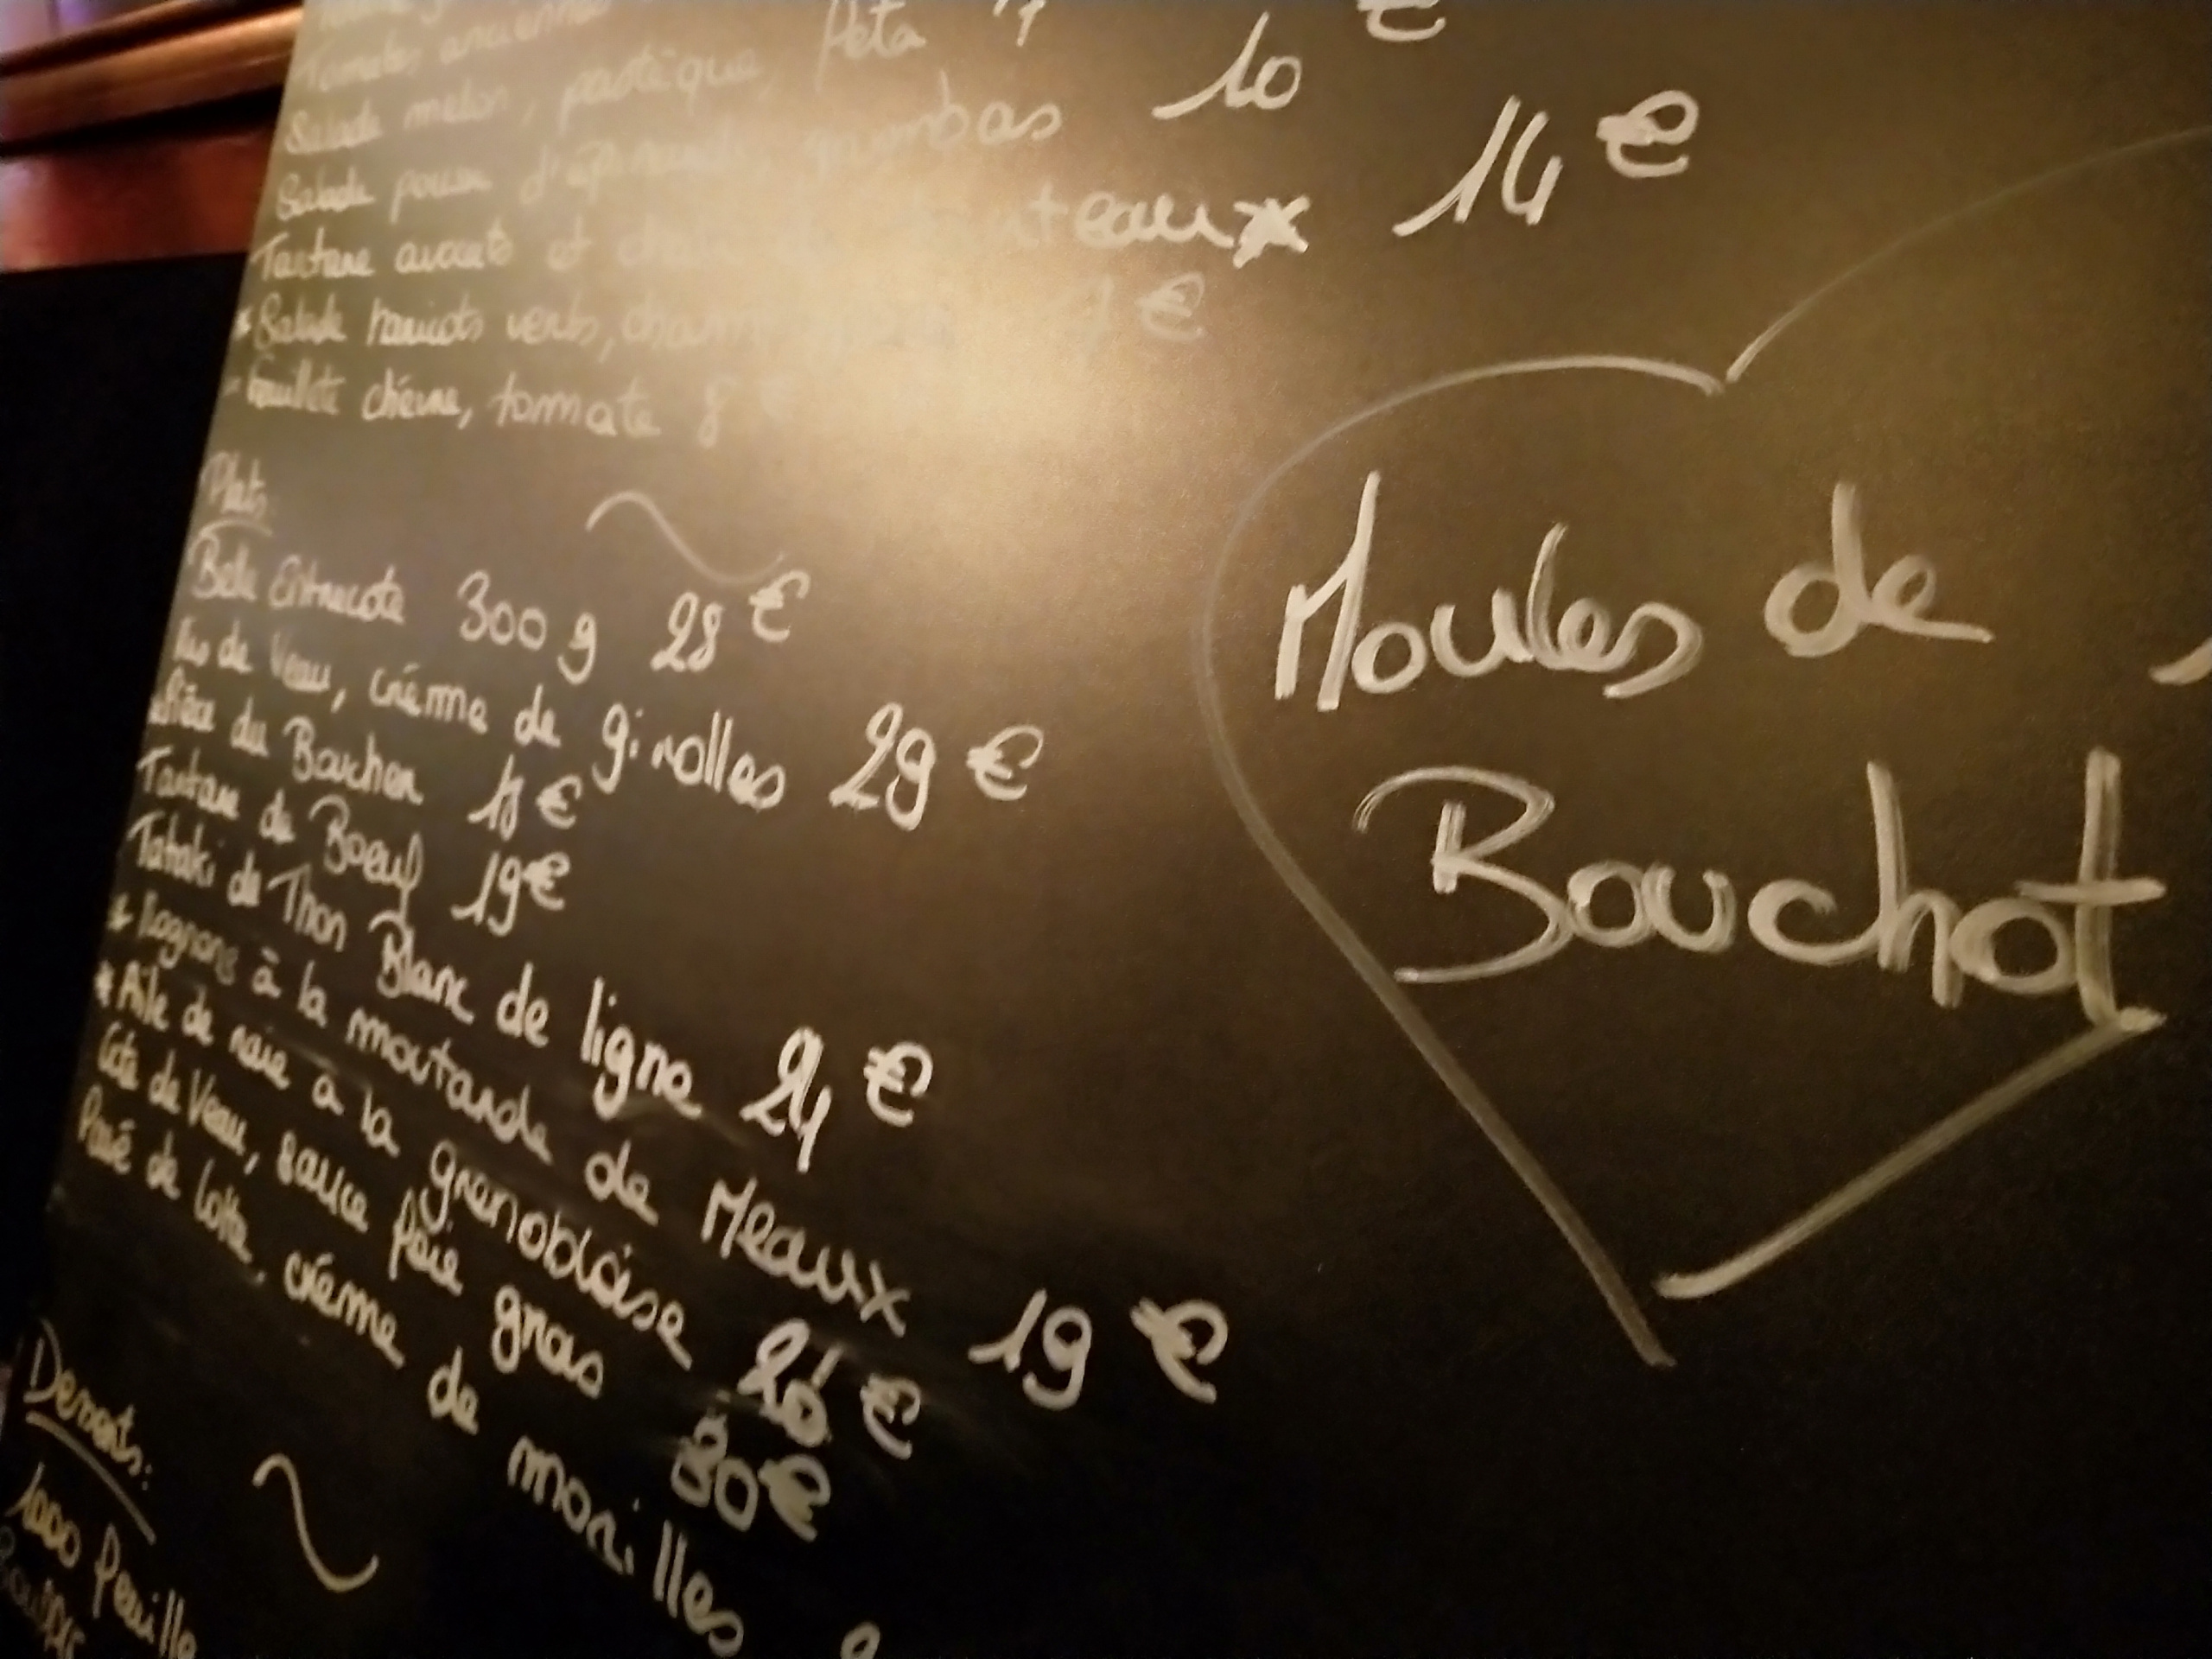 Tomates anciennes
Salade melon, pastèque, féta 7
€
Salade pousse d'épinards, gambas 10
Tartare avocats et de tourteaux 14 €
* Salade haricots verts, €
- Feuilleté chèvre, tomate 8
Plats:
Belle Entrecote 300 g 28 €
Ris de Veau, créme de girolles 29 €
Pièce du Boucher 18 €
Tartare de Boeuf 19 €
Tataki de Thon Blanc de ligne 24 €
* Rognons à la moutarde de Meaux 19 €
* Aile de raie à la grenobloise 20 €
Cote de Veau, sauce foie gras 30 €
Pavé de lotte, créme de morilles
Desserts:
1000 feuille
Moules de
Bouchot